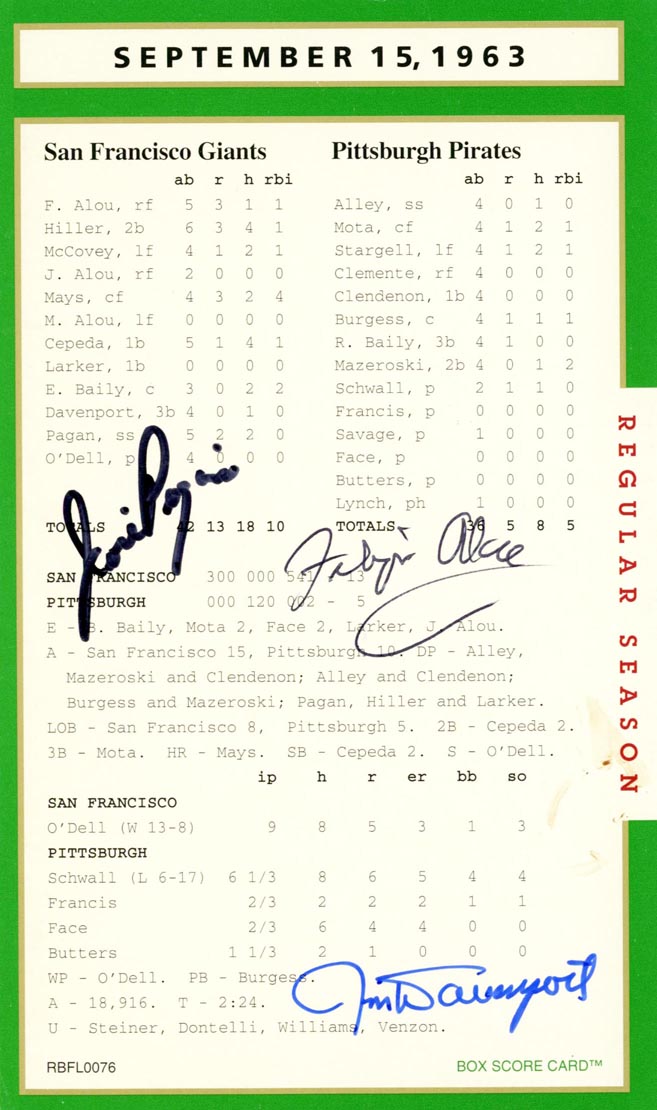 SEPTEMBER 15, 1963
San Francisco Giants
ab r h rbi
F. Alou, rf 5 3 1 1
Hiller, 2b 6 3 4 1
McCovey, lf 4 1 2 1
J. Alou, rf 2 0 0 0
Mays, cf 4 3 2 4
M. Alou, lf 0 0 0 0
Cepeda, 1b 5 1 4 1
Larker, 1b 0 0 0 0
E. Baily, c 3 0 2 2
Davenport, 3b 4 0 1 0
Pagan, ss 5 2 2 0
O'Dell, p 4 0 0 0
TOTALS 42 13 18 10
Pittsburgh Pirates
ab r h rbi
Alley, ss 4 0 1 0
Mota, cf 4 1 2 1
Stargell, lf 4 1 2 1
Clemente, rf 4 0 0 0
Clendenon, 1b 4 0 0 0
Burgess, c 4 1 1 1
R. Baily, 3b 4 1 0 0
Mazeroski, 2b 4 0 1 2
Schwall, p 2 1 1 0
Francis, p 0 0 0 0
Savage, p 1 0 0 0
Face, p 0 0 0 0
Butters, p 0 0 0 0
Lynch, ph 1 0 0 0
TOTALS 36 5 8 5
Jose Pagan
Felipe Alou
SAN FRANCISCO 300 000 541 - 13
PITTSBURGH 000 120 002 - 5
E - B. Baily, Mota 2, Face 2, Larker, J. Alou.
A - San Francisco 15, Pittsburgh 10. DP - Alley,
Mazeroski and Clendenon; Alley and Clendenon;
Burgess and Mazeroski; Pagan, Hiller and Larker.
LOB - San Francisco 8, Pittsburgh 5. 2B - Cepeda 2.
3B - Mota. HR - Mays. SB - Cepeda 2. S - O'Dell.
ip h r er bb so
SAN FRANCISCO
O'Dell (W 13-8) 9 8 5 3 1 3
PITTSBURGH
Schwall (L 6-17) 6 1/3 8 6 5 4 4
Francis 2/3 2 2 2 1 1
Face 2/3 6 4 4 0 0
Butters 1 1/3 2 1 0 0 0
WP - O'Dell. PB - Burgess.
A - 18,916. T - 2:24.
U - Steiner, Dontelli, Williams, Venzon.
Jim Davenport
RBFL0076
BOX SCORE CARD™
REGULAR SEASON